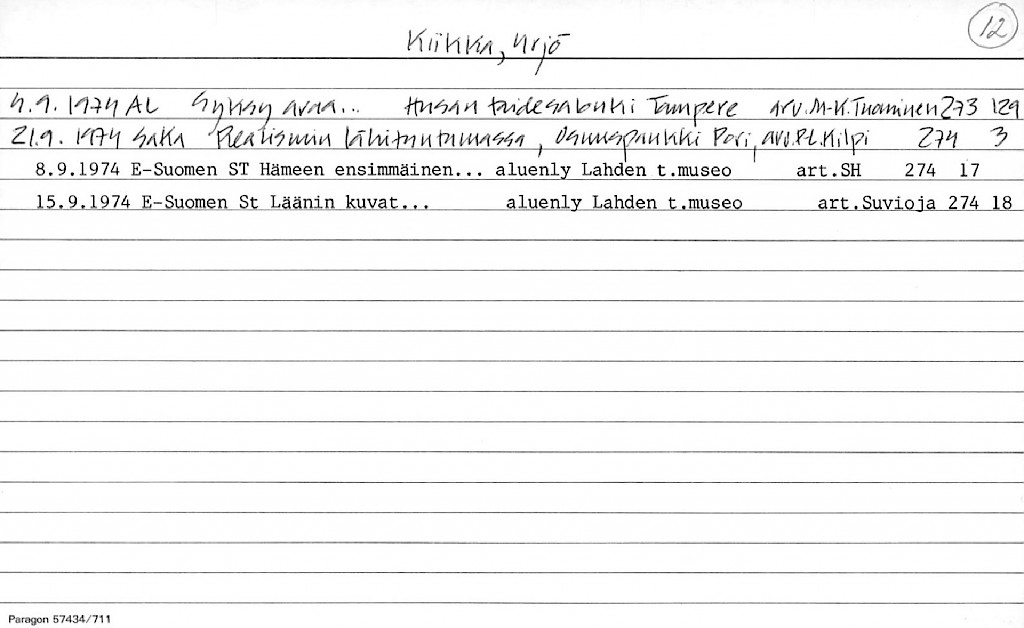 Kiikka, Yrjö
12
4.9. 1974 AL Syksy avaa... Husan taidesalonki Tampere arv. M-K.Tuominen 273 129
21.9. 1974 SaKa Realismin lähituntumassa, Osuuspankki Pori, arv. P.L.Kilpi 274 3
8.9.1974 E-Suomen ST Hämeen ensimmäinen... aluenly Lahden t.museo art.SH 274 17
15.9.1974 E-Suomen St Läänin kuvat... aluenly Lahden t.museo art.Suvioja 274 18
Paragon 57434/711